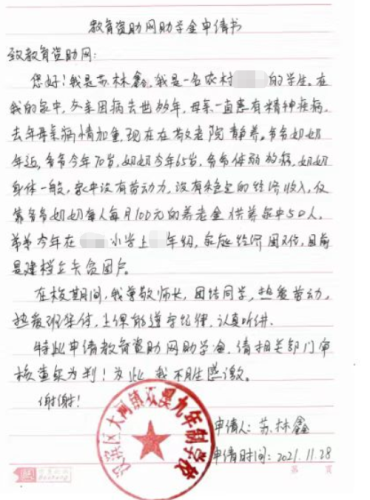 教育资助网助学金申请书
致教育资助网：
您好！我是苏林鑫，我是一名农村的学生。在
我的家中，父亲因病去世多年，母亲一直患有精神疾病，
去年母亲病情加重，现在在敬老院静养。爷爷奶奶
年迈，爷爷今年70岁，奶奶今年65岁，爷爷体弱多病，奶奶
身体一般，家中没有劳动力，没有稳定的经济收入，仅
靠爷爷奶奶每人每月100元的养老金供养家中5口人，
弟弟今年在小学上年级，家庭经济困难，目前
是建档立卡贫困户。
在校期间，我尊敬师长，团结同学，热爱劳动，
热爱班集体，上课能遵守纪律，认真听讲。
特此申请教育资助网助学金，请相关部门审
核查实为判！为此，我不胜感激。
谢谢！
申请人：苏林鑫
申请时间：2021.11.28
汉滨区大河镇 九年制学校